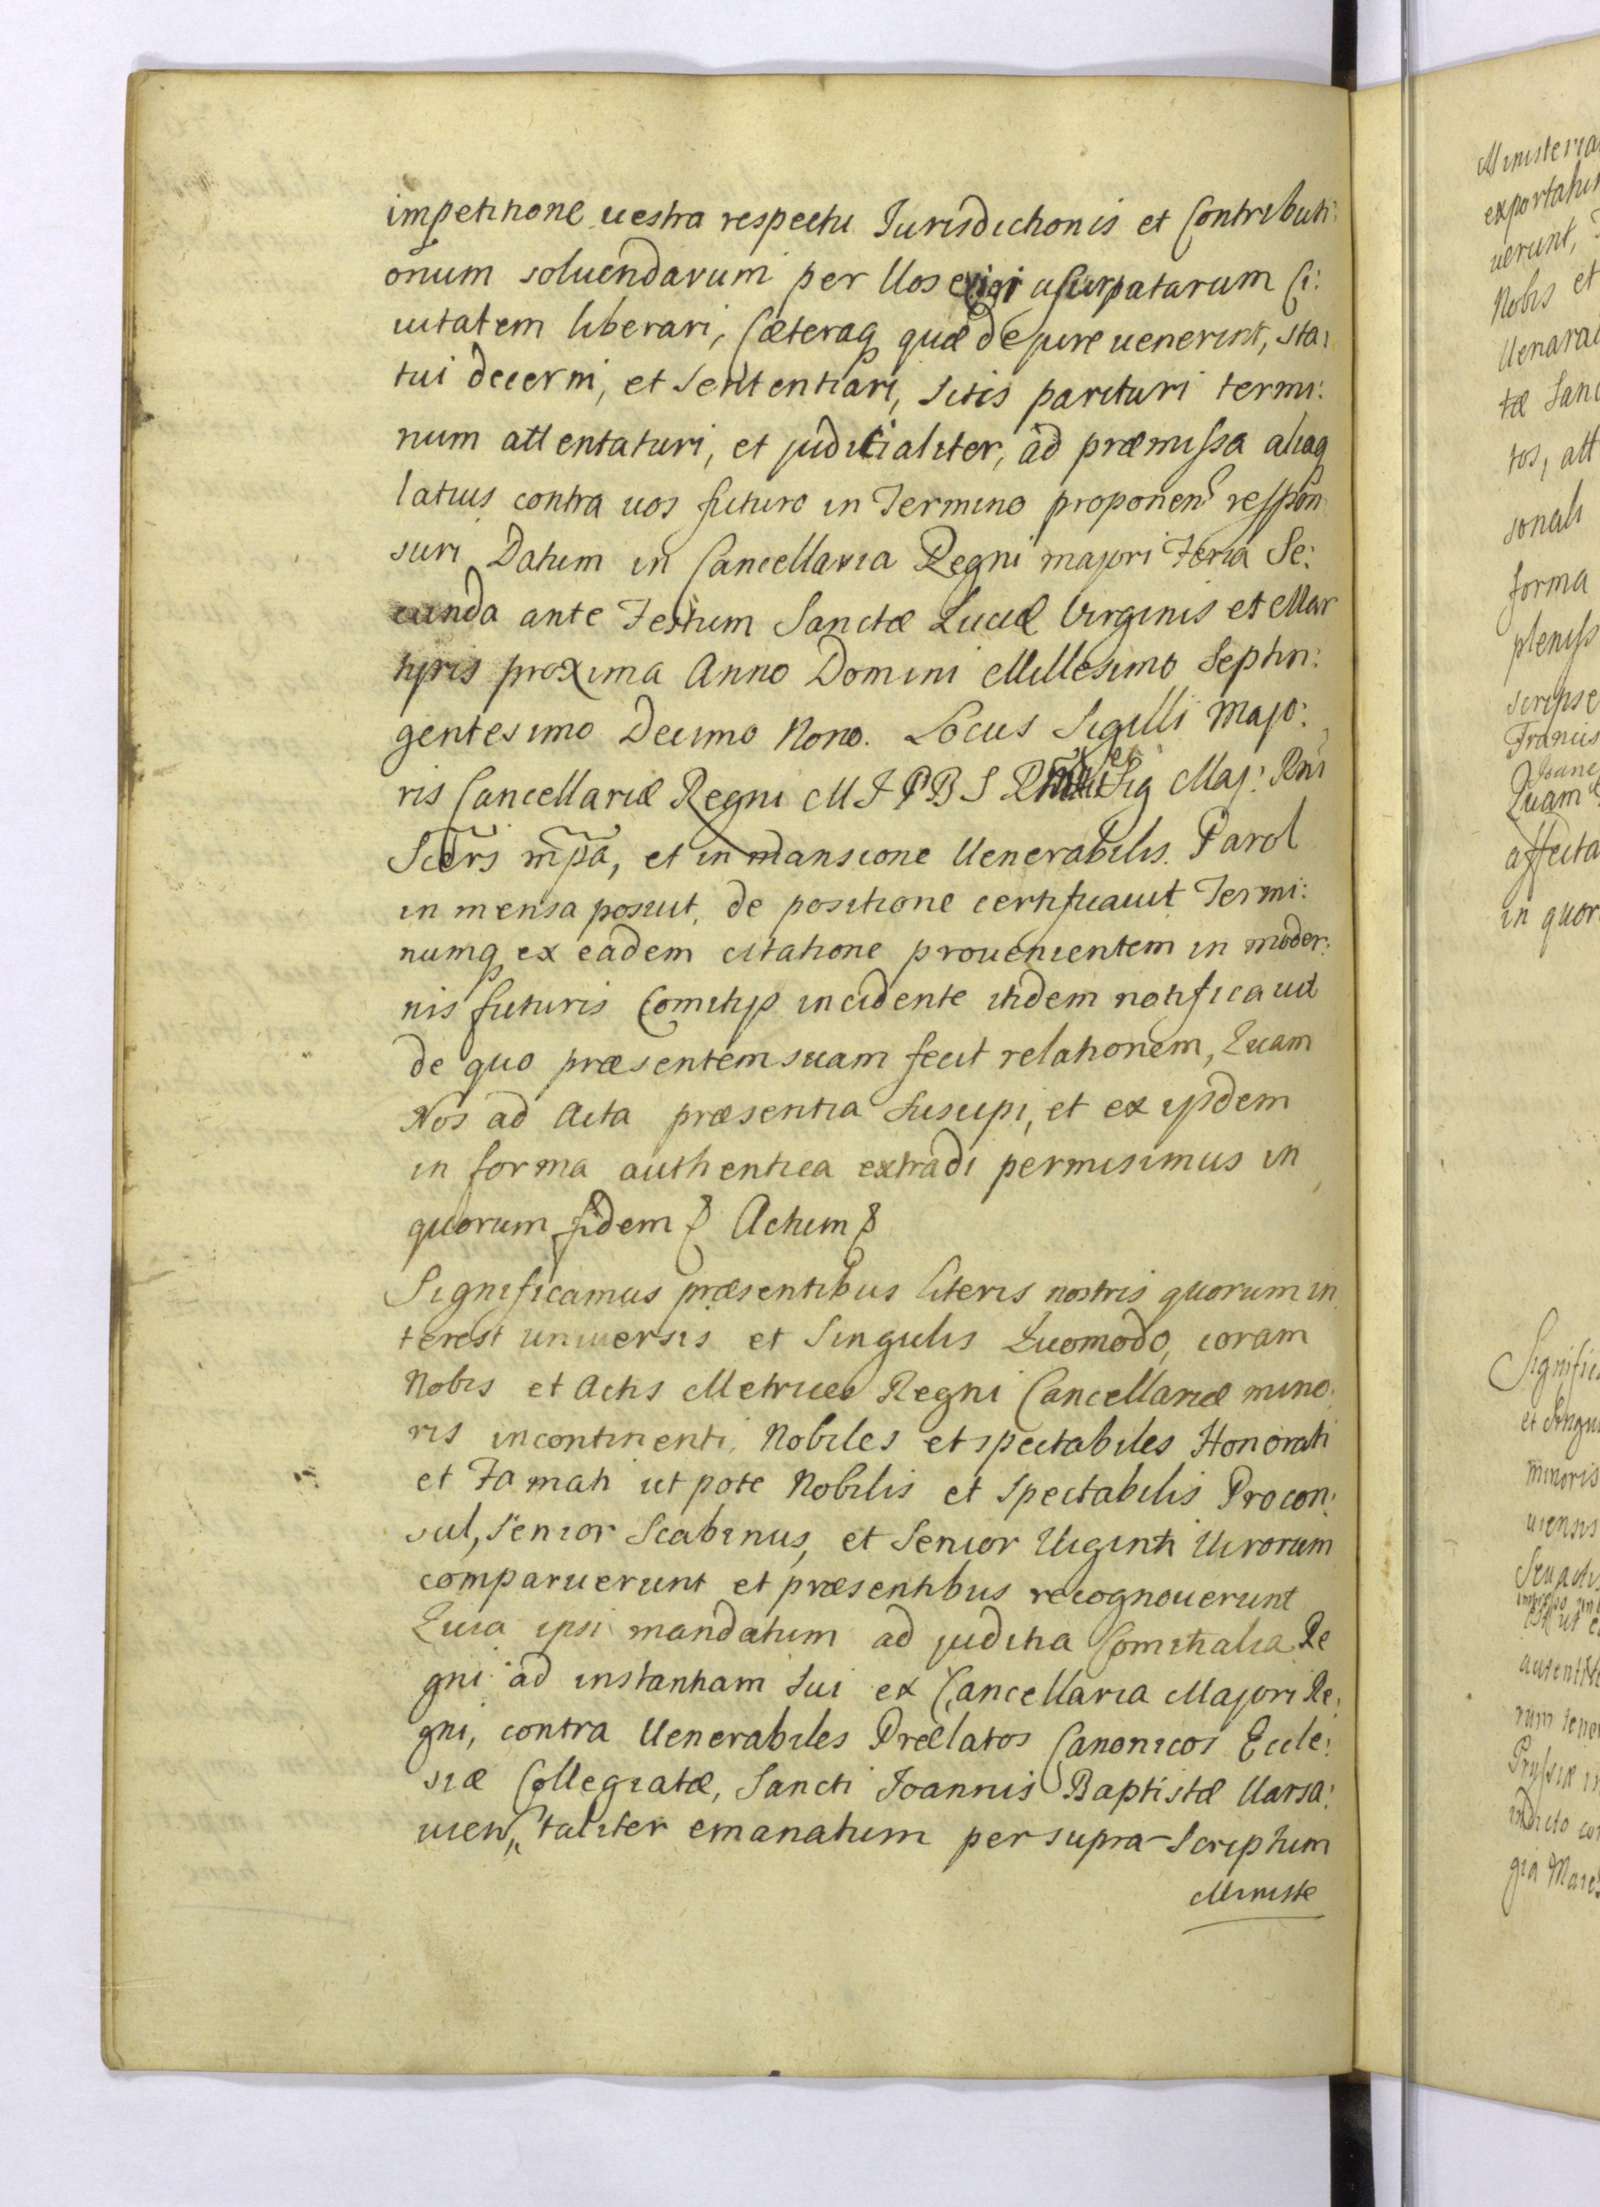 impetitione vestra respectu Jurisdictionis et Contributi:
onum solvendarum per Vos exigi usurpatarum Ci:
vitatem liberari, Cæteraq quæ de jure venerint, sta:
tui decerni, et sententiari, sitis parituri termi:
num attentaturi, et judicialiter, ad præmissa aliaq
latius contra vos futuro in Termino proponen respon
suri Datum in Cancellaria Regni majori Feria Se:
cunda ante Festum Sanctæ Luciæ Virginis et Mar
tyris proxima Anno Domini Millesimo Septin:
gentesimo Decimo Nono. Locus Sigilli Majo:
ris Cancellariæ Regni M J P B S R Sig Maj: Rni
Scrs mpa, et in mansione Venerabilis Parol
in mensa posuit, de positione certificavit Termi:
numq ex eadem citatione provenientem in moder:
nis futuris Comitijs incidente itidem notificavit
de quo præsentem suam fecit relationem, Quam
Nos ad Acta præsentia suscipi, et ex ijsdem
in forma authentica extradi permisimus in
quorum fidem Actum
Significamus præsentibus literis nostris quorum in
terest universis et Singulis Quomodo, coram
Nobis et Actis Metrices Regni Cancellariæ mino:
ris incontinenti, Nobiles et spectabiles Honorati
et Famati ut pote Nobilis et Spectabilis Procon:
sul, Senior Scabinus, et Senior Viginti Virorum
comparuerunt et præsentibus recognoverunt
Quia ipsi mandatum ad juditia Comitialia Re
gni ad instantiam sui ex Cancellaria Majori Re:
gni, contra Venerabiles Prælatos Canonicos Eccle:
siæ Collegiatæ, Sancti Joannis Baptistæ Varsa:
vien, taliter emanatum per supra-Scriptum
Ministe
Ministeria
exportatu
verunt,
Nobis et
tæ San
tos, att
sonali
forma
pleniss
scripse
Francis
Quam
affecta
in quor
et Singu
minoris
viensis